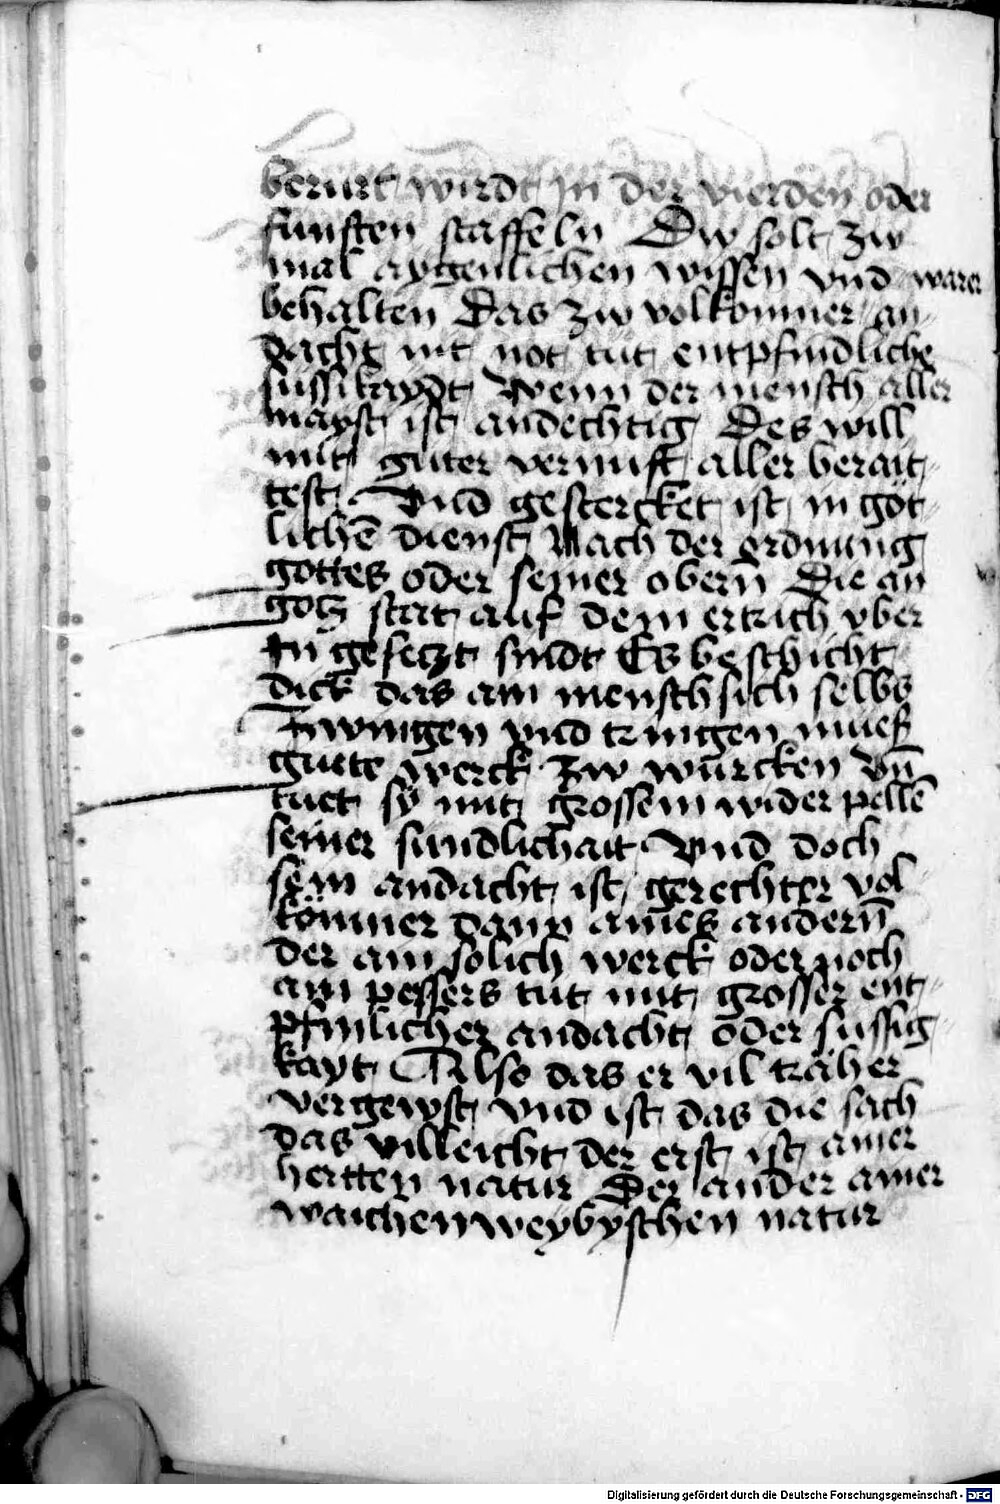 berurt wirdt in der vierden oder
funften staffeln Dw solt zw
mal aygenlichen wissen vnd warer
behalten Das zw volkomner an„
dacht nit not tut entpfindliche
sussikaydt Wenn der mensch aller
mayst ist andechtig Des will
mit guter vernuft aller berait„
test Vnd gestercket ist in göt„
lichē dienst Nach der ordnung
gottes oder seiner obern̄ Die an
gotz stat auf dem ertrich vber
In gesetzt sindt Es beschicht
dick das ain mensch sich selbs
zwingen vnd tzingen mueß
guete werck zw würcken Vn̄
tuet sy mit grossem wider pellē
seiner sundlichait Vnd doch
sein andacht ist gerechter vol
kömner dann aines andern̄
der ain solich werck oder noch
ain pessers tut mit grosser ent„
pfinlicher andacht oder sussig„
kayt Also das er vil träher
vergewst vnd ist das die sach
das villeicht der erst ist ainer
hertten natur Der ander ainer
waichen weybyschen natur
Digitalisierung gefördert durch die Deutsche Forschungsgemeinschaft - DFG